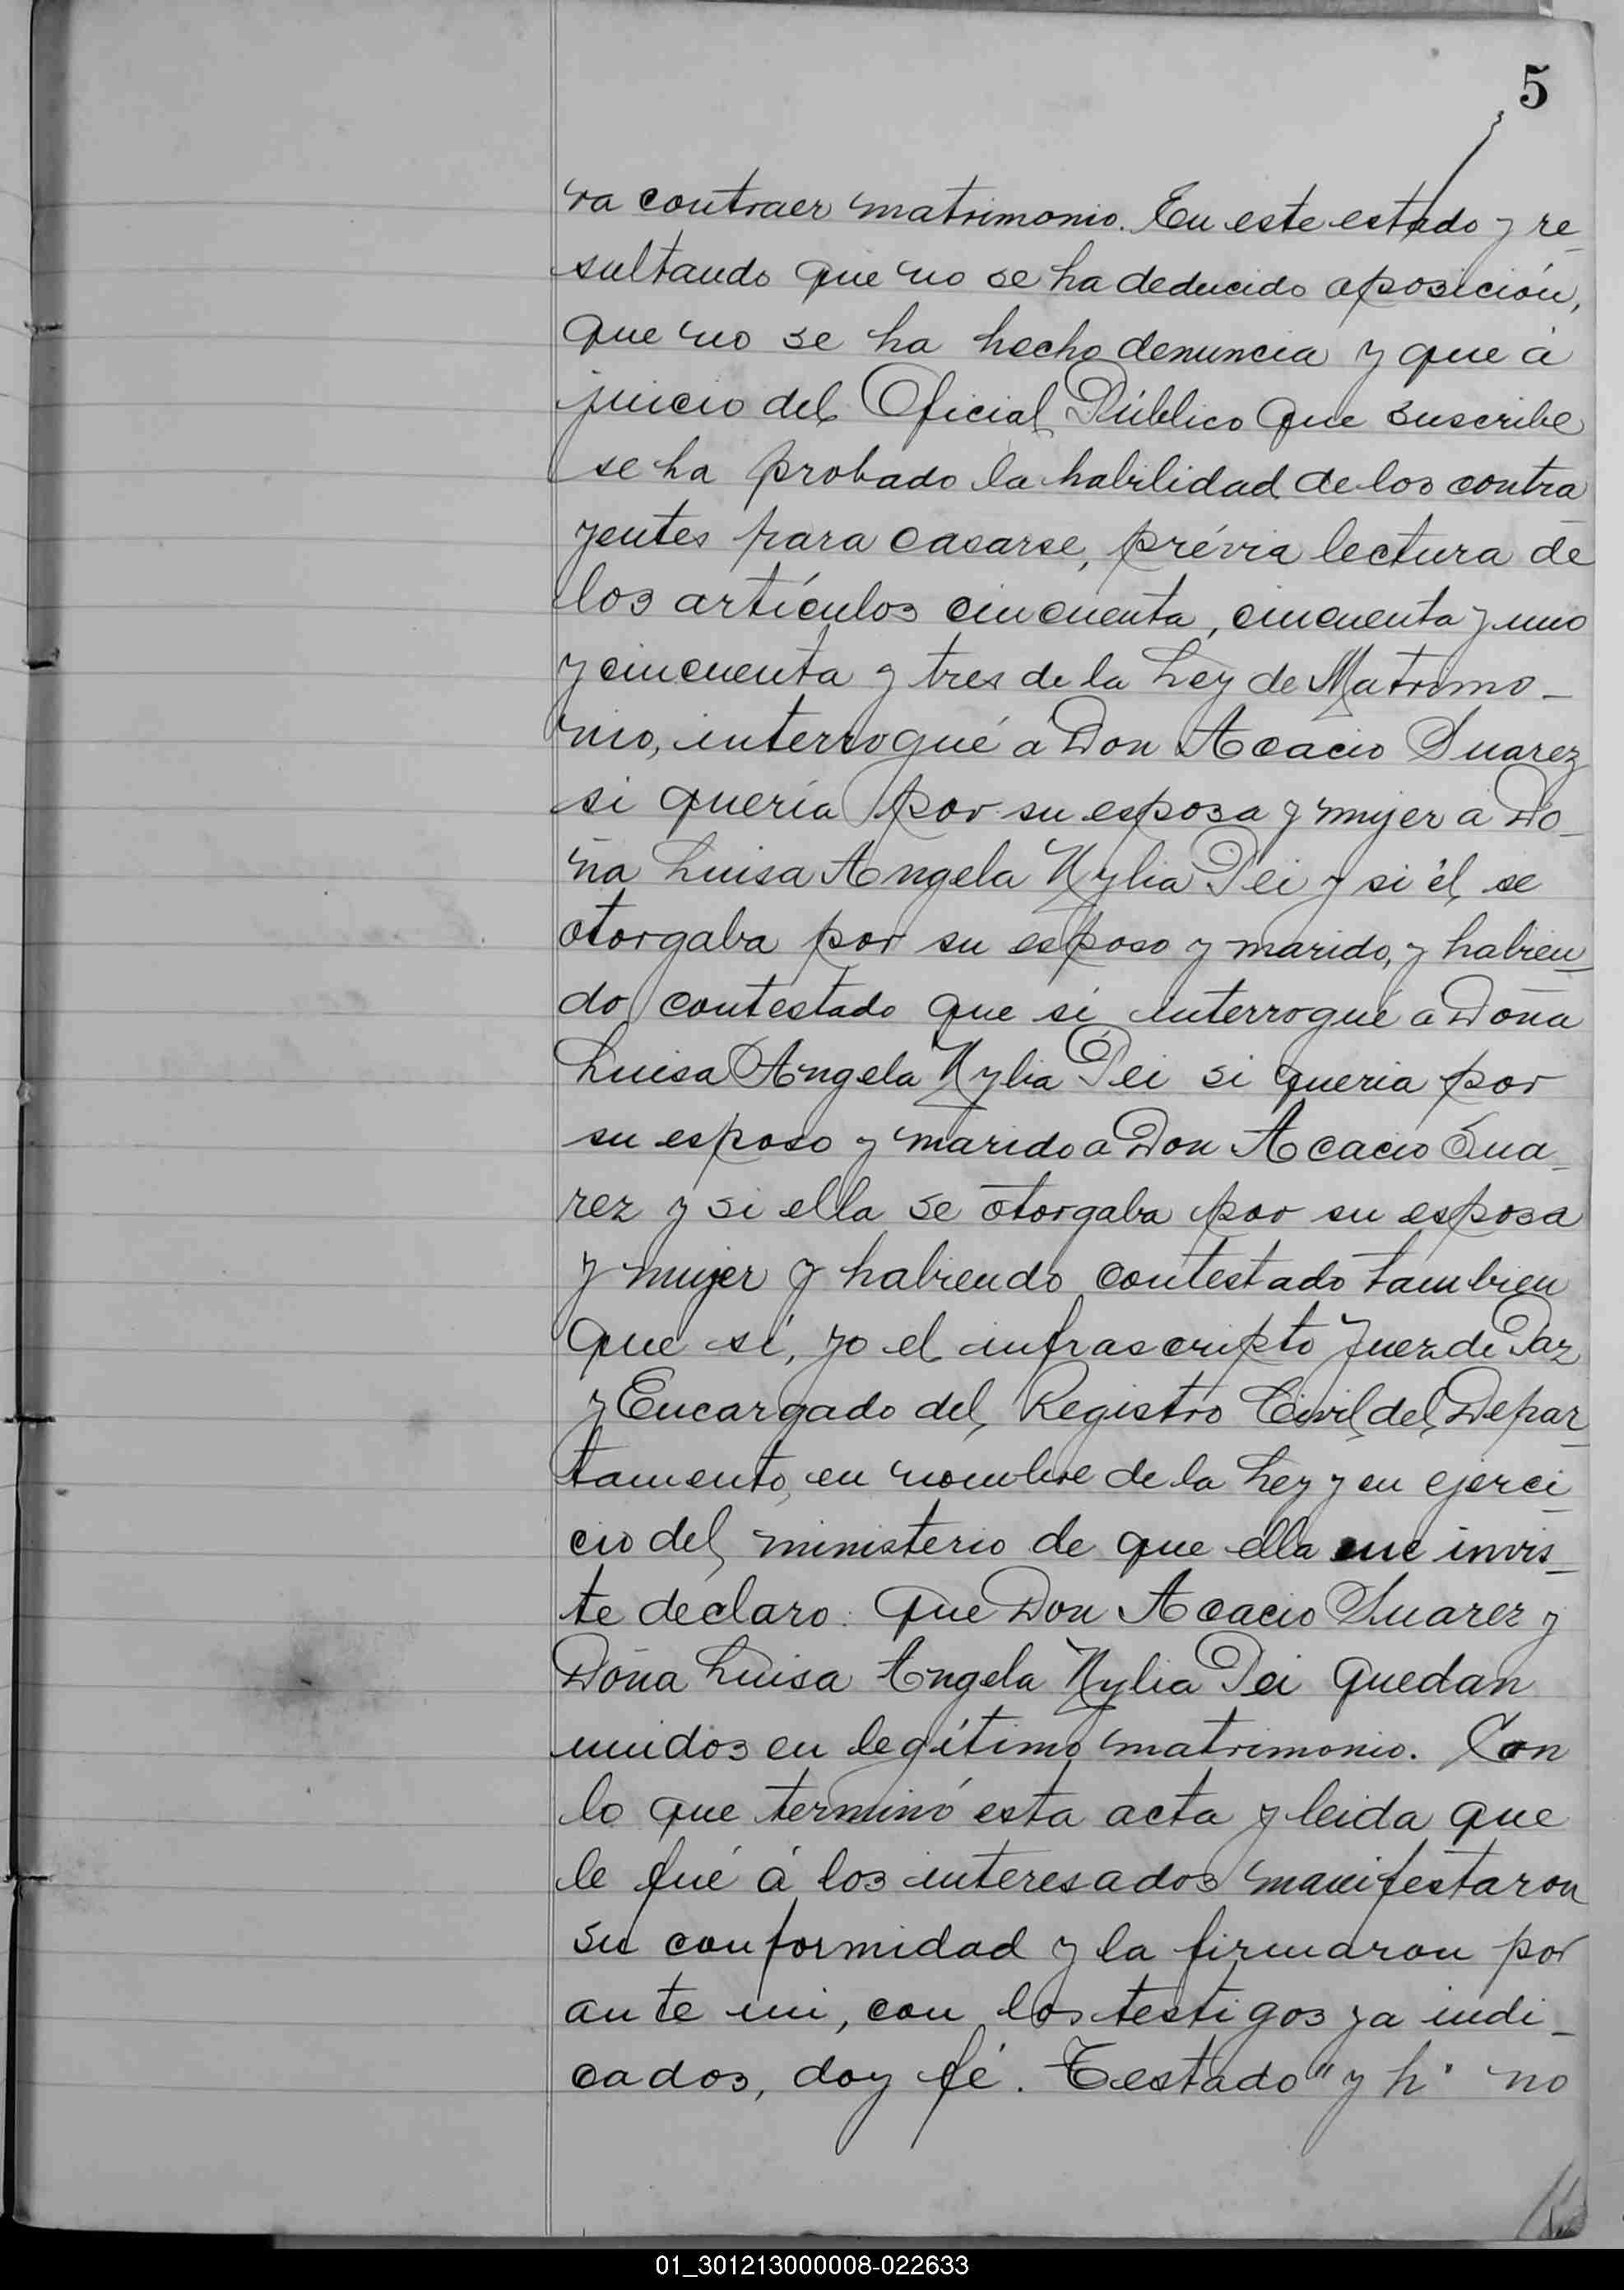 5
ra contraer matrimonio. En este estado y re_
sultando que no se ha deducido oposición,
que no se ha hecho denuncia y que á
juicio del Oficial Público que suscribe
se ha probado la habilidad de los contra_
yentes para casarse, prévia lectura de
los artículos cincuenta, cincuenta y uno
y cincuenta y tres de la Ley de Matrimo_
nio, interrogué á Don Acacio Suarez
si quería por su esposa y mujer a Do_
ña Luisa Angela Nylia Pei y si él, se
otorgaba por su esposo y marido, y habien_
do contestado que si interrogué a Doña
Luisa Angela Nylia Pei si queria por
su esposo y marido a Don Acacio Sua_
rez y si ella se otorgaba por su esposa
y mujer y habiendo contestado tambien
que sí, yo el infrascripto Juez de Paz
y Encargado del Registro Civil del Depar_
tamento, en nombre de la Ley y en ejerci_
cio del ministerio de que ella me invis_
te declaro: Que Don Acacio Suarez y
Doña Luisa Angela Nylia Pei quedan
unidos en legítimo matrimonio. Con
lo que terminó esta acta y leida que
le fué á los interesados manifestaron
su conformidad y la firmaron por
ante mi, con los testigos ya indi_
cados, doy fé. Testado "y h" no
01_301213000008-022633